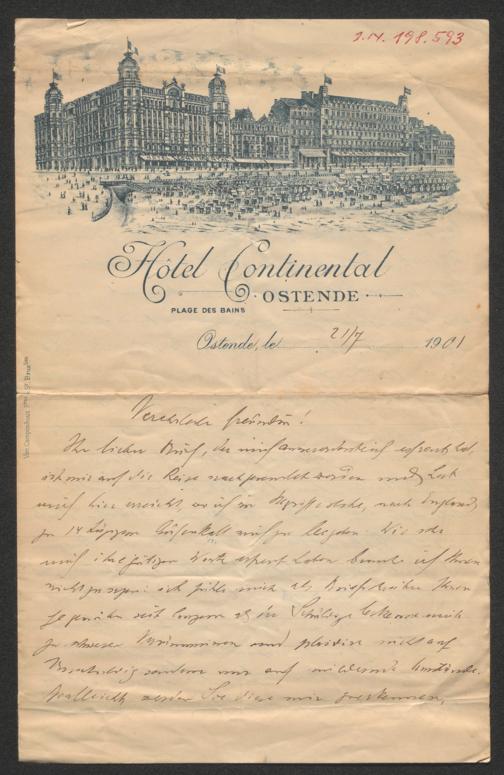 I.N. 198.593
Hôtel Continental
OSTENDE
PLAGE DES BAINS
Ostende, le 21/7 1901
Verehrteste Freundin!
Ihr lieber Brief, der mich ausserordentlich erfreut hat,
ist mir auf die Reise nachgesendet worden und hat
mich hier erreicht, wo ich im Begriffe stehe, nach England
zu 14 tägigem Aufenthalt mich zu begeben. Wie sehr
mich ihre gütigen Worte erfreut haben brauche ich Ihnen
nicht zu sagen: ich fühle mich als Briefschreiber Ihnen
gegenüber seit langem als der Schuldige bekenne mich
zu schweren und plaidire nicht auf
sondern nur auf mildernde Umstände.
Vielleicht werden Sie diese mir zuerkennen,